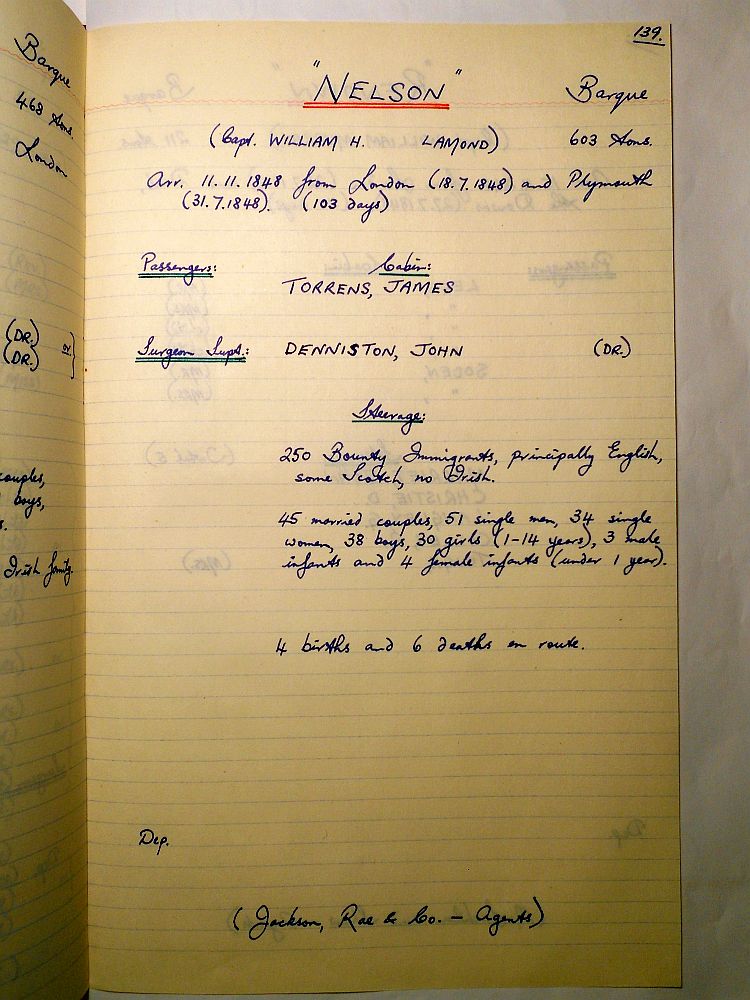 139.
"NELSON" Barque
(Capt. WILLIAM H. LAMOND) 603 tons.
Arr. 11.11.1848 from London (18.7.1848) and Plymouth
(31.7.1848). (103 days)
Passengers: Cabin:
TORRENS, JAMES
Surgeon Supt.: DENNISTON, JOHN (DR.)
Steerage:
250 Bounty Immigrants, principally English,
some Scotch, no Irish.
45 married couples, 51 single men, 34 single
women, 38 boys, 30 girls (1-14 years), 3 male
infants and 4 female infants (under 1 year).
4 births and 6 deaths en route.
Dep.
(Jackson, Rae & Co. - Agents)
Barque
468 tons.
London
(DR.)
(DR.)
couples,
boys,
Irish family.